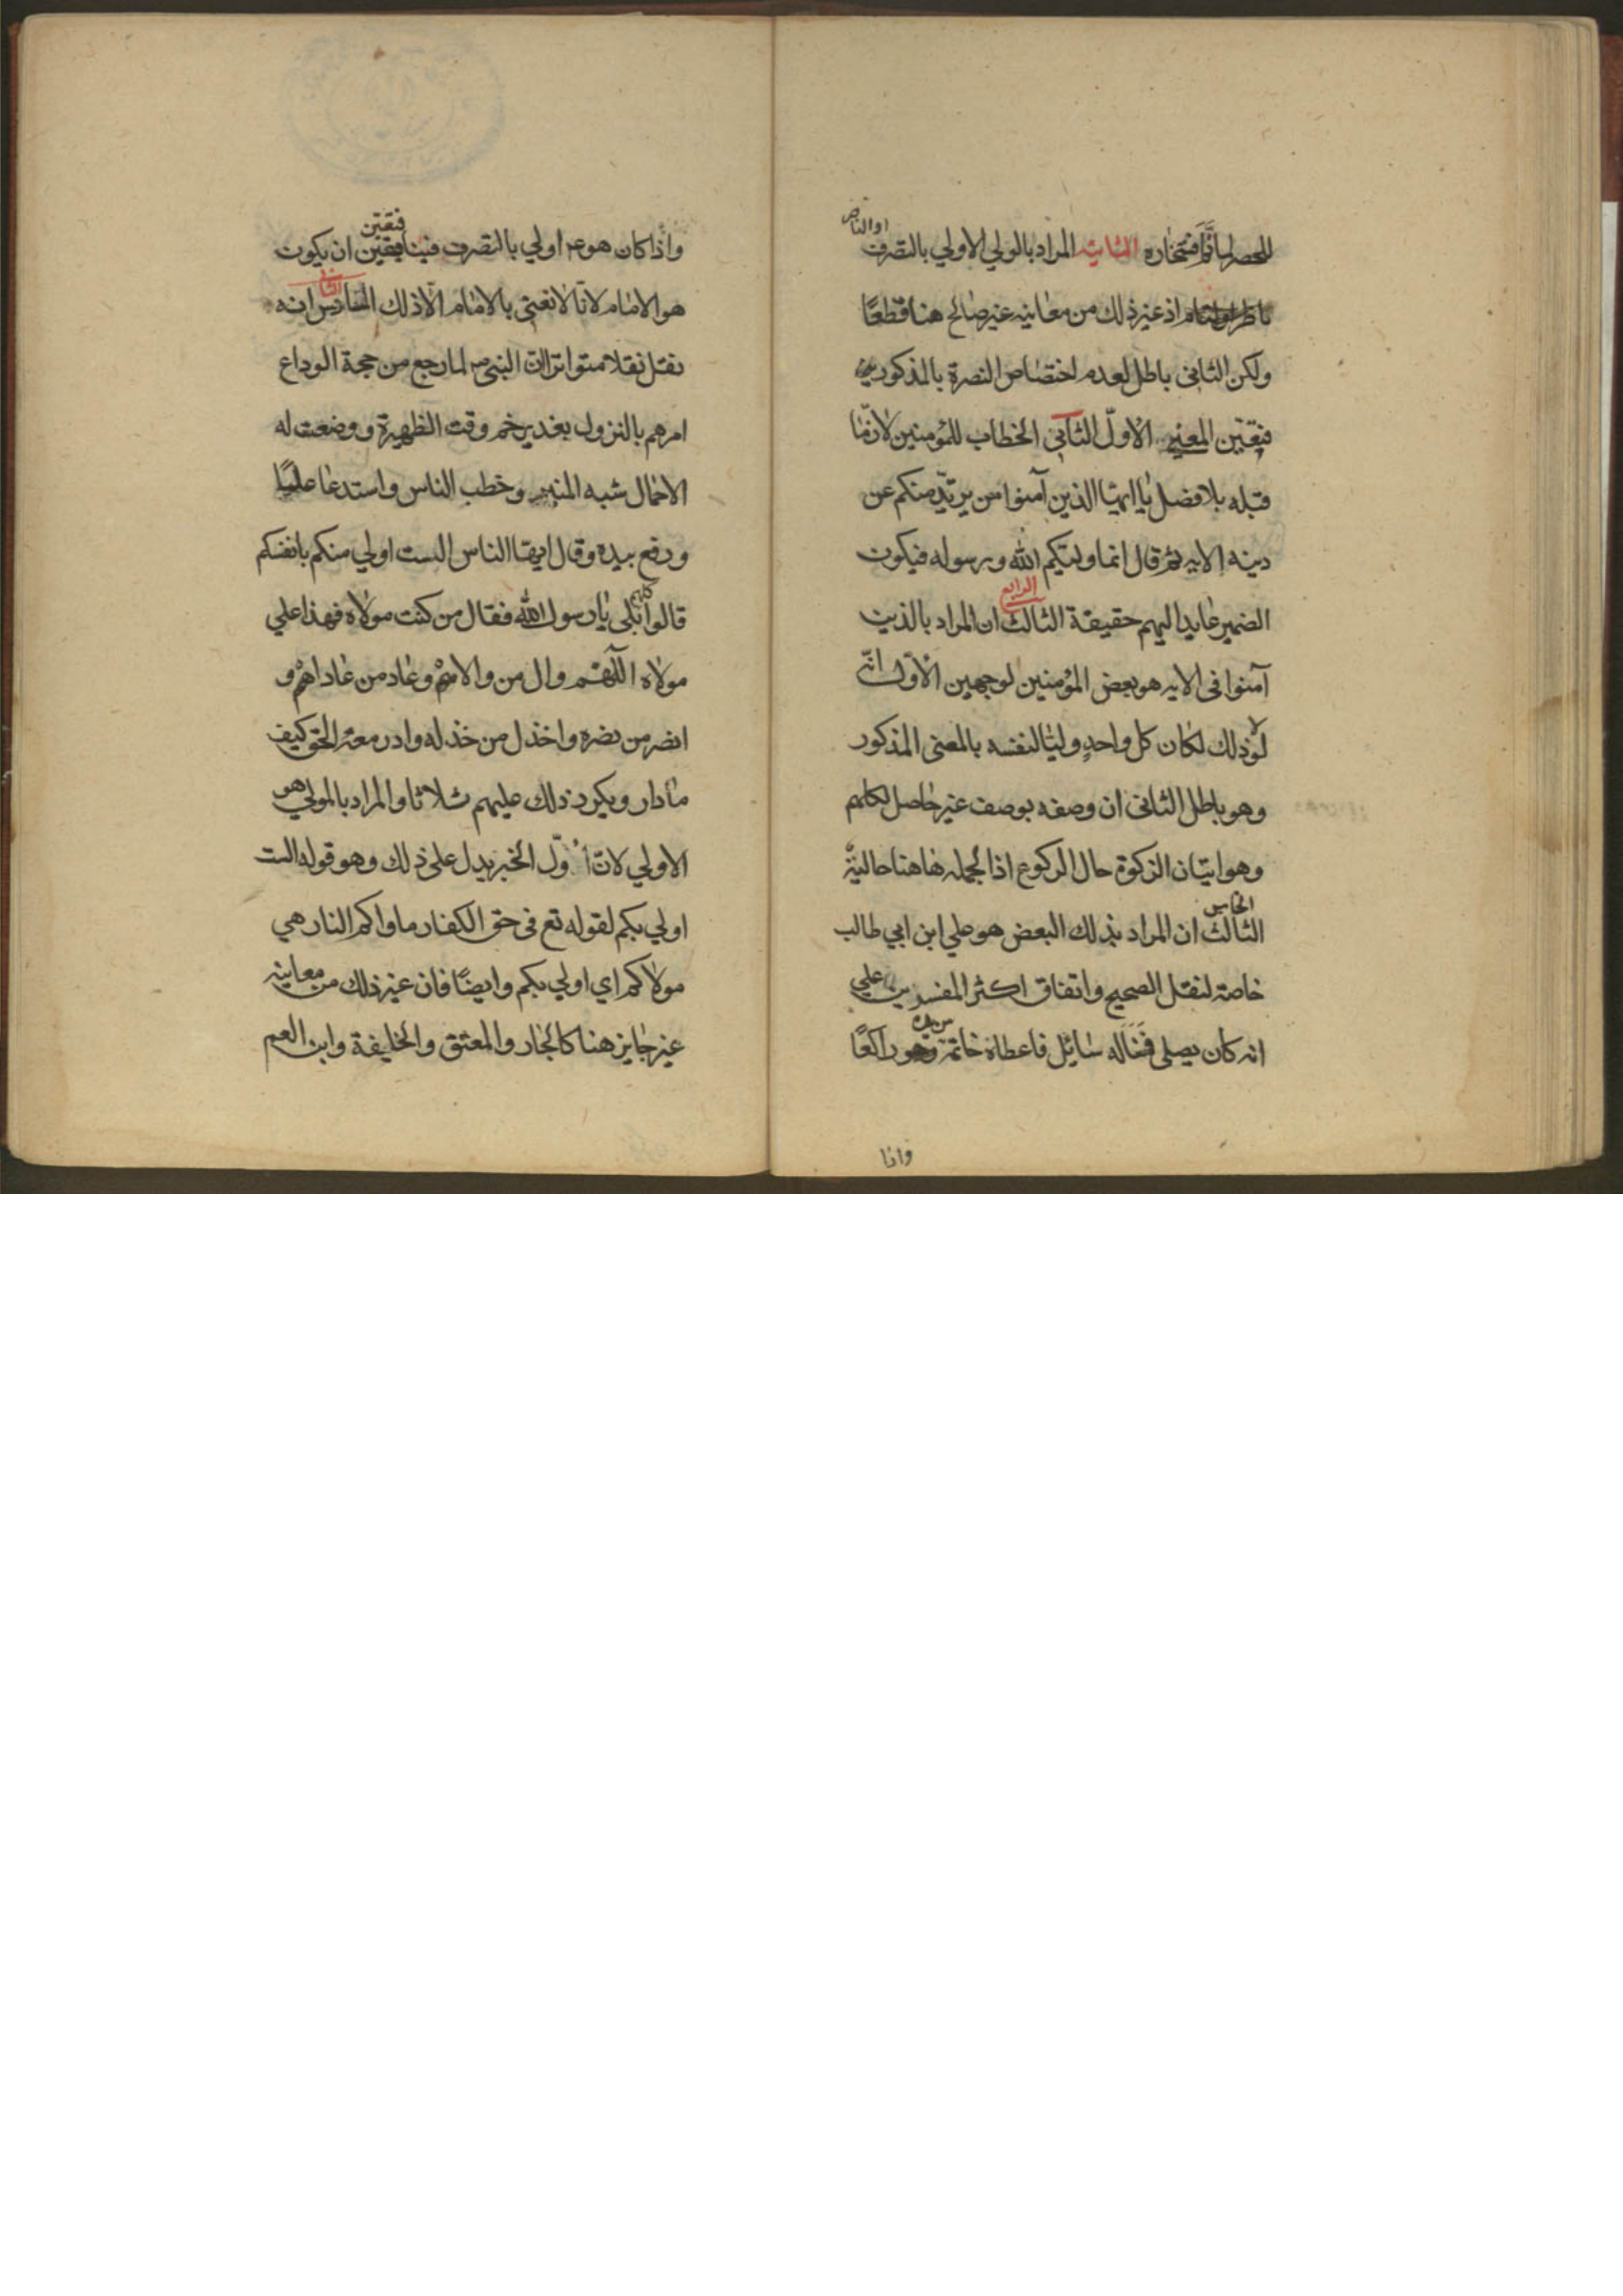 للحصر لما تمّ افتخاره الثانيه المراد بالولي الاولي بالتصرف
او الناصر
اذ غير ذلك من معانيه غير صالح هنا قطعًا
ولكن الثاني باطل لعدم اختصاص النصرة بالمذكور
فتعيّن المعني الاوّل الثاني الخطاب للمؤمنين لانّ ما
قبله بلا فصل يا ايها الذين آمنوا من يرتدّ منكم عن
دينه الايه ثم قال انما وليكم الله ورسوله فيكون
الرابع
الضمير عايدا اليهم حقيقة الثالث ان المراد بالذين
آمنوا في الايه هو بعض المؤمنين لوجهين الاوّل انّه
لولا ذلك لكان كل واحدٍ وليّا لنفسه بالمعنى المذكور
وهو باطل الثاني ان وصفه بوصف غير حاصل لكلهم
وهو ايتان الزكوة حال الركوع اذ الجمله هاهنا حاليّة
الخامس
الثالث ان المراد بذلك البعض هو علي ابن ابي طالب
خاصة لنقل الصحيح واتفاق اكثر المفسرين علي
انه كان يصلي فسأله سائل فاعطاه خاتمة وهو راكعًا
واذا
فتعيّن
واذا كان هو ع اولي بالتصرف ان يكون
الثاني
هو الامام لانّا لا نعني بالامام الّا ذلك السادس انه
نقل نقلا متواترا انّ النبي ص لما رجع من حجة الوداع
امرهم بالنزول بغدير خم وقت الظهيرة ووضعت له
الاحمال شبه المنبر وخطب الناس واستدعا عليًا
ورفع بيده وقال ايها الناس الست اولي منكم بانفسكم
قالوا بلى يا رسول الله فقال من كنت مولاه فهذا علي
مولاه اللهّم وال من والاهم وعاد من عاداهم و
انصر من نصره واخذل من خذله وادر معه الحق كيف
ما دار ويكرر ذلك عليهم ثلاثا والمراد بالمولي هو
الاولي لانّ اوّل الخبر يدل على ذلك وهو قوله الست
اولي بكم لقوله تع في حق الكفار ماواكم النار هي
مولاكم اي اولي بكم وايضًا فان غير ذلك من معانيه
غير جايز هنا كالجار والمعتق والخليفة وابن العم